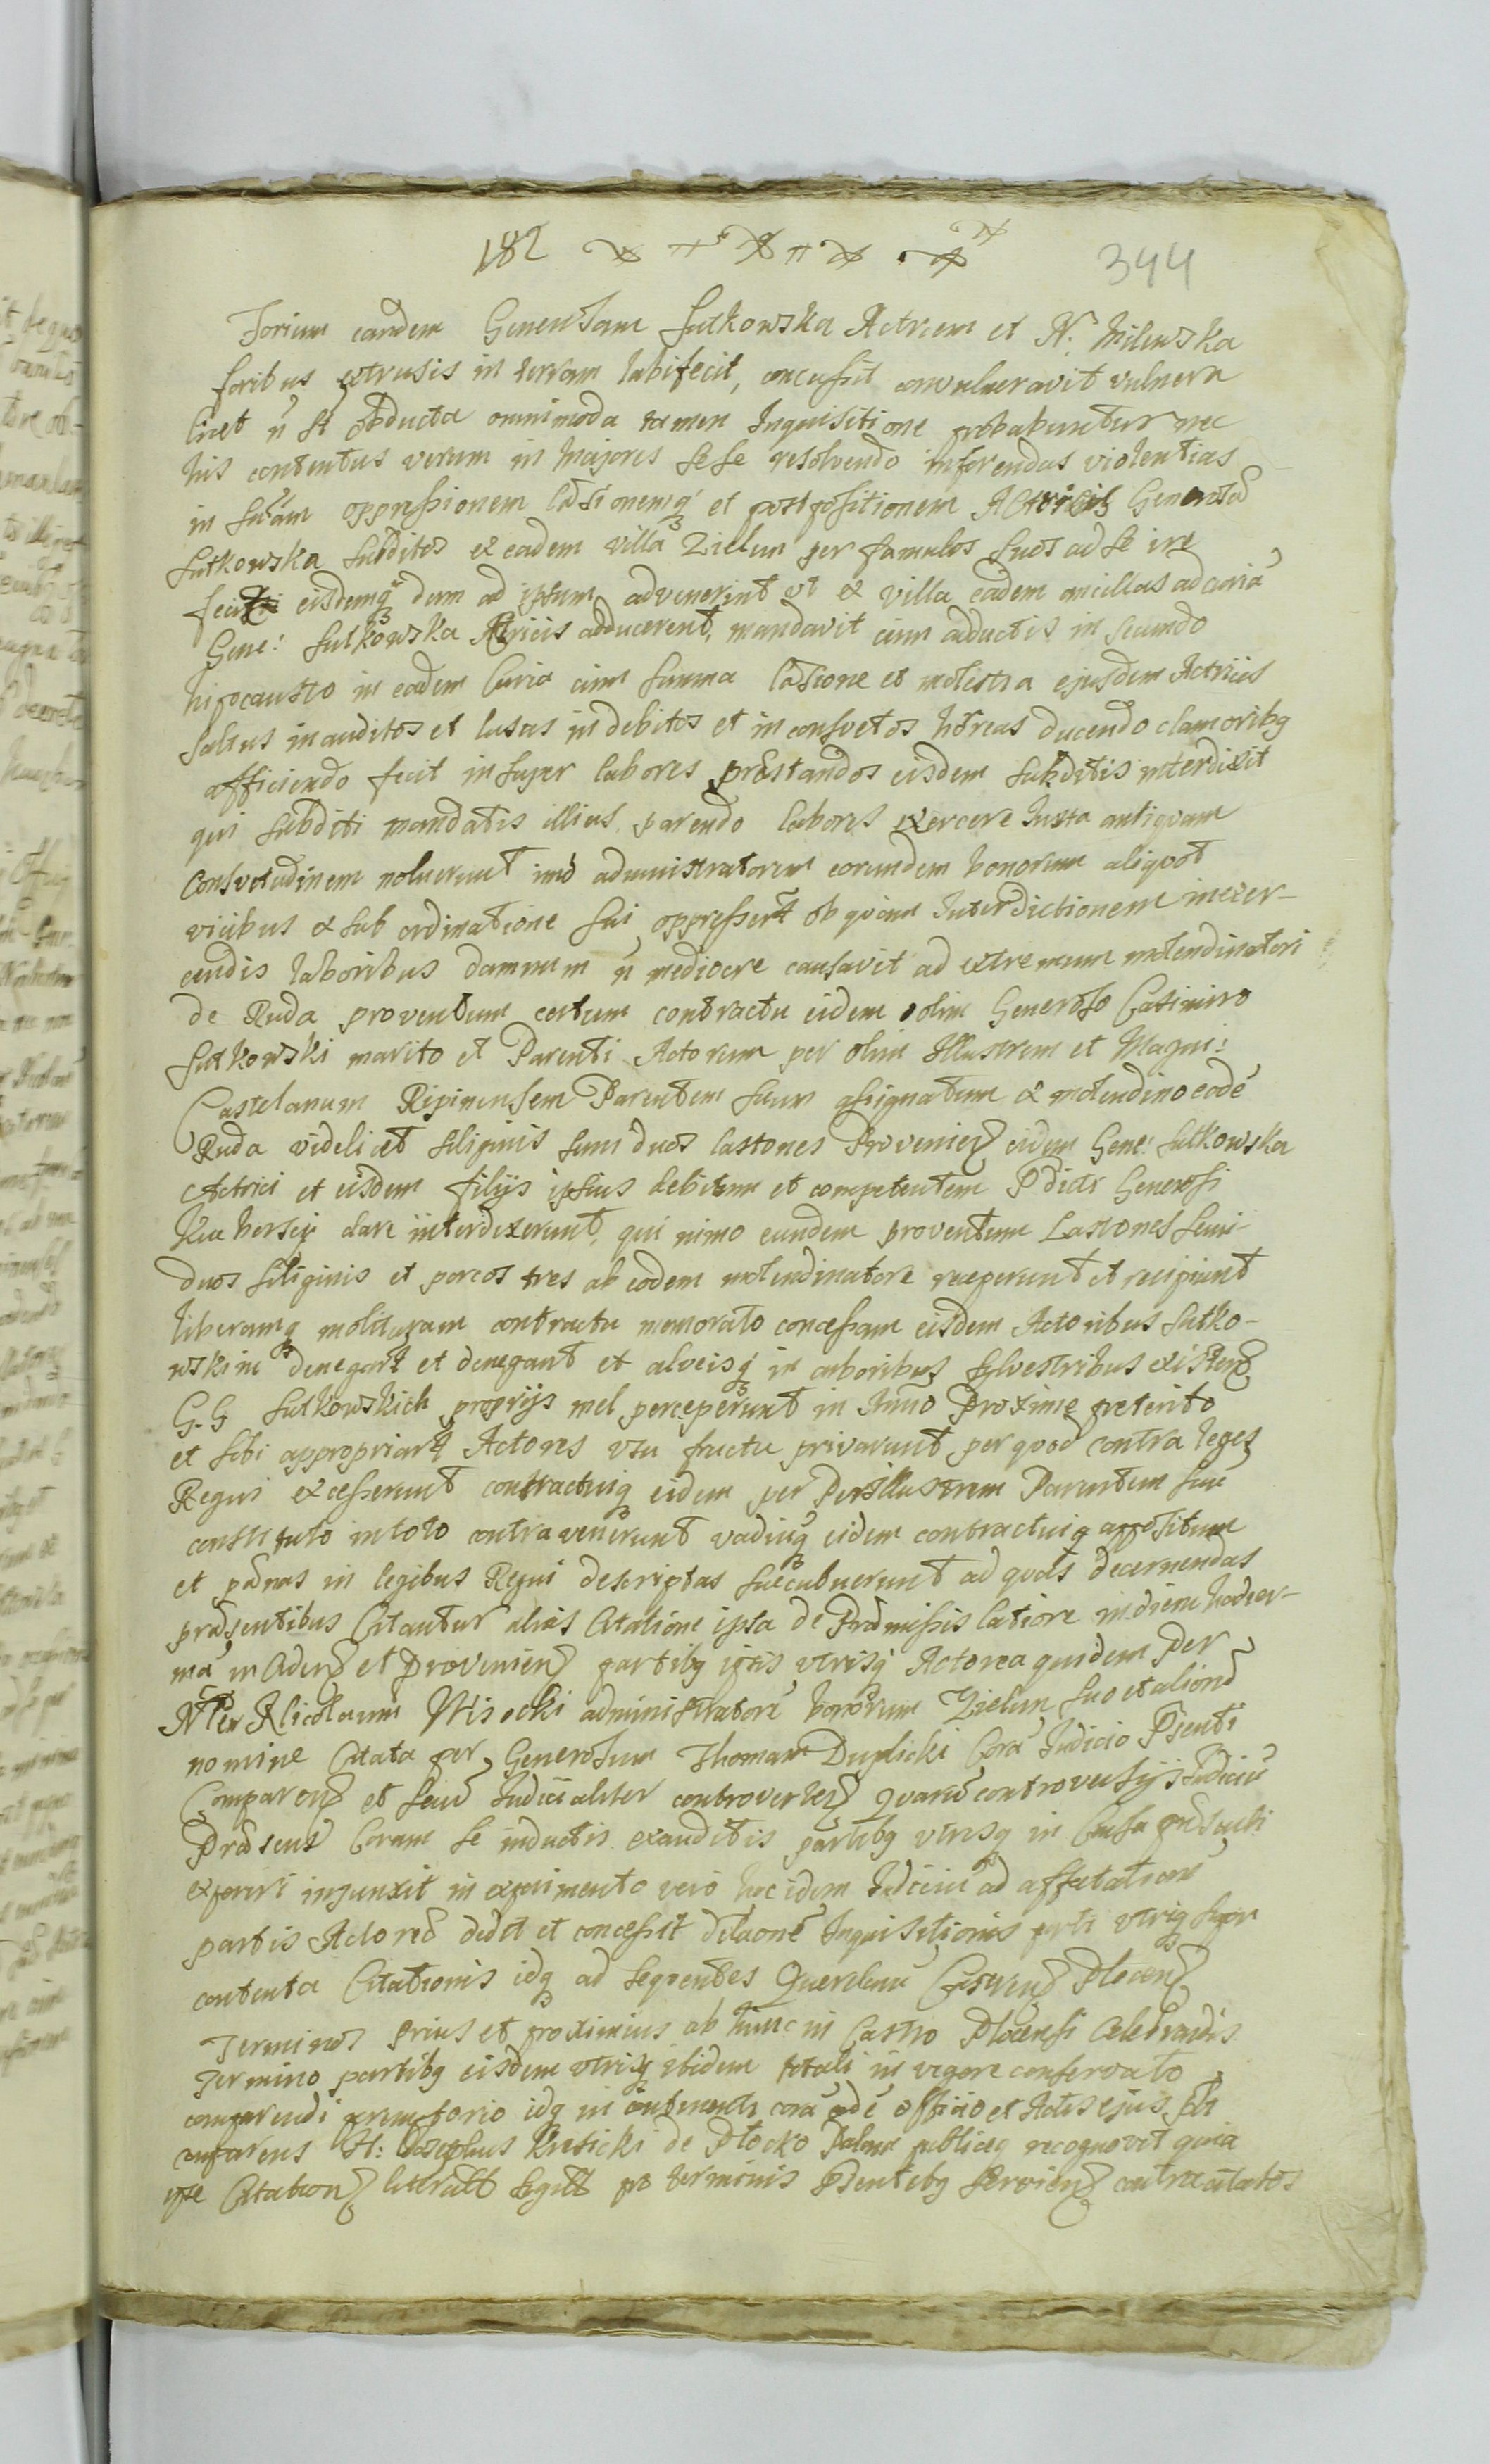 182
344
Torium eandem Generosam Sutkowska Actricem et N: Milewska
foribus extrusis in terram labifecit, concussit convulneravit vulnera
licet n̄ st obducta omnimoda tamen Inquisitione probabuntur nec
his contentus verum in Majores sese resolvendo inferendas violentias
in suam oppressionem læsionemq et postpositionem Actricis Generosæ
Sutkowska subditos ex eadem villa Zielun per famulos suos ad se ire
fecit eisdemq dum ad ipsum advenerint vt ex villa eadem ancillas ad curiā
Gene: Sutkowska Actricis adducerent, mandavit cum adductis in secundo
hipocausto in eadem Curia cum summa læsione et molestia ejusdem Actricis
saltus inauditos et lusus indebitos et inconsvetos choreas ducendo clamoribq
afficiendo fecit insuper labores præstandos eisdem subditis interdixit
qui subditi mandatis illius parendo labores exercere Iuxta antiquam
Consvetudinem noluerunt imo administratorem eorundem bonorum aliquot
vicibus ex subordinatione sui oppresserūt ob quam Interdictionem inexer-
cendis laboribus damnum n̄ mediocre causavit ad extremum molendinatori
de Ruda proventum certum contractu eidem olim Generoso Casimiro
Sutkowski marito et Parenti Actorum per olim Illustrem et Magni:
Castelanum Ripinensem Parentem suum assignatum ex molendino eodē
Ruda videlicet siliginis semiduos lastones Provenien eidem Gene: Sutkowska
Actrici et eisdem filijs ipsius debitum et competentem Pdicti Generosi
dare interdixerunt, qui nimo eundem proventum Lastones semi-
duos siliginis et porcos tres ab eodem molendinatore receperunt et recipiunt
liberamq molituram contractu memorato concessam eisdem Actoribus Sutko-
wskim denegarūt et denegant et alveisq in arboribus sylvestribus existen
G.G Sutkowskich proprijs mel perceperunt in Anno Proxime preterito
et sibi appropriarūt Actores vsu fructu privarunt per quod contra leges
Regni excesserunt contractuiq eidem per Perillustrem Parentem suū
constituto in toto contravenerunt vadiūq eidem contractuiq appositum
et pænas in legibus Regni descriptas succubuerunt ad quas decernendas
præsentibus Citantur alias Citatione ipsa de Præmissis latiore in diem hodier-
nā inciden et Provenien partibq ipsis vtrisq Actorea quidem Per
N Nicolaum Wisocki administratorē bonorum Zielun suo et alionō
nomine Citata per Generosum Thomam Duplicki Corā Iudicio Psenti
Comparen et seu Iudicialiter controverten Quarū controversijs Iudiciū
Præsens Coram se inductis exauditis partibq vtrisq in Causa
experiri injunxit in experimento vero hoc idem Iudiciū ad affectationē
partis Actoreæ dedit et concessit dilaonē Inquisitionis parti vtriq super
contenta Citationis idq ad sequentes Querelarū Castren Plocen
Terminos Prius et proximius ab hinc in Castro Plocensi Celebrandos
Termino partibq eisdem vtrisq ibidem totali in vigore conservato
comparendi peremptorio idq in continenti corā eodē officio et Actis ejus
comparens H: Josephus Krusicki de Plocko publiceq recognovit quia
ipse Citation literas pro terminis Psentibq servien contra citatos